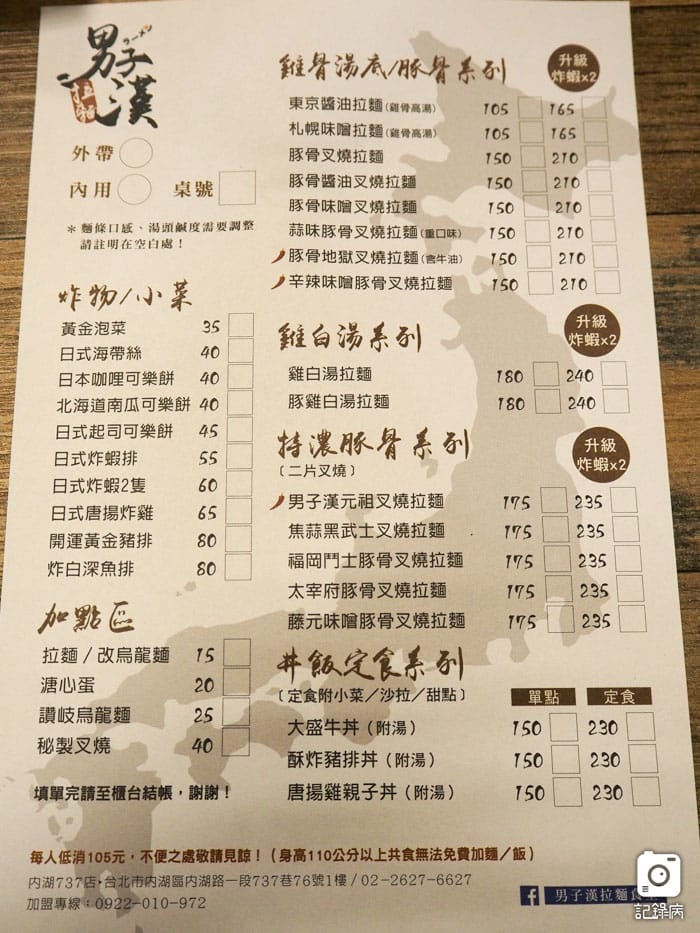 ラーメン
男子漢
拉麵
外帶
內用 桌號
＊麵條口感、湯頭鹹度需要調整
請註明在空白處！
炸物/小菜
黃金泡菜 35
日式海帶絲 40
日本咖哩可樂餅 40
北海道南瓜可樂餅 40
日式起司可樂餅 45
日式炸蝦排 55
日式炸蝦2隻 60
日式唐揚炸雞 65
開運黃金豬排 80
炸白深魚排 80
加點區
拉麵／改烏龍麵 15
溏心蛋 20
讚岐烏龍麵 25
秘製叉燒 40
填單完請至櫃台結帳，謝謝！
雞骨湯底/豚骨系列 升級炸蝦x2
東京醬油拉麵(雞骨高湯) 105 165
札幌味噌拉麵(雞骨高湯) 105 165
豚骨叉燒拉麵 150 210
豚骨醬油叉燒拉麵 150 210
豚骨味噌叉燒拉麵 150 210
蒜味豚骨叉燒拉麵(重口味) 150 210
豚骨地獄叉燒拉麵(含牛油) 150 210
辛辣味噌豚骨叉燒拉麵 150 210
雞白湯系列 升級炸蝦x2
雞白湯拉麵 180 240
豚雞白湯拉麵 180 240
特濃豚骨系列 升級炸蝦x2
〔二片叉燒〕
男子漢元祖叉燒拉麵 175 235
焦蒜黑武士叉燒拉麵 175 235
福岡鬥士豚骨叉燒拉麵 175 235
太宰府豚骨叉燒拉麵 175 235
藤元味噌豚骨叉燒拉麵 175 235
丼飯定食系列
〔定食附小菜／沙拉／甜點〕 單點 定食
大盛牛丼（附湯） 150 230
酥炸豬排丼（附湯） 150 230
唐揚雞親子丼（附湯） 150 230
每人低消105元，不便之處敬請見諒！（身高110公分以上共食無法免費加麵／飯）
內湖737店・台北市內湖區內湖路一段737巷76號1樓/02-2627-6627
加盟專線：0922-010-972
男子漢拉麵食堂
記錄病